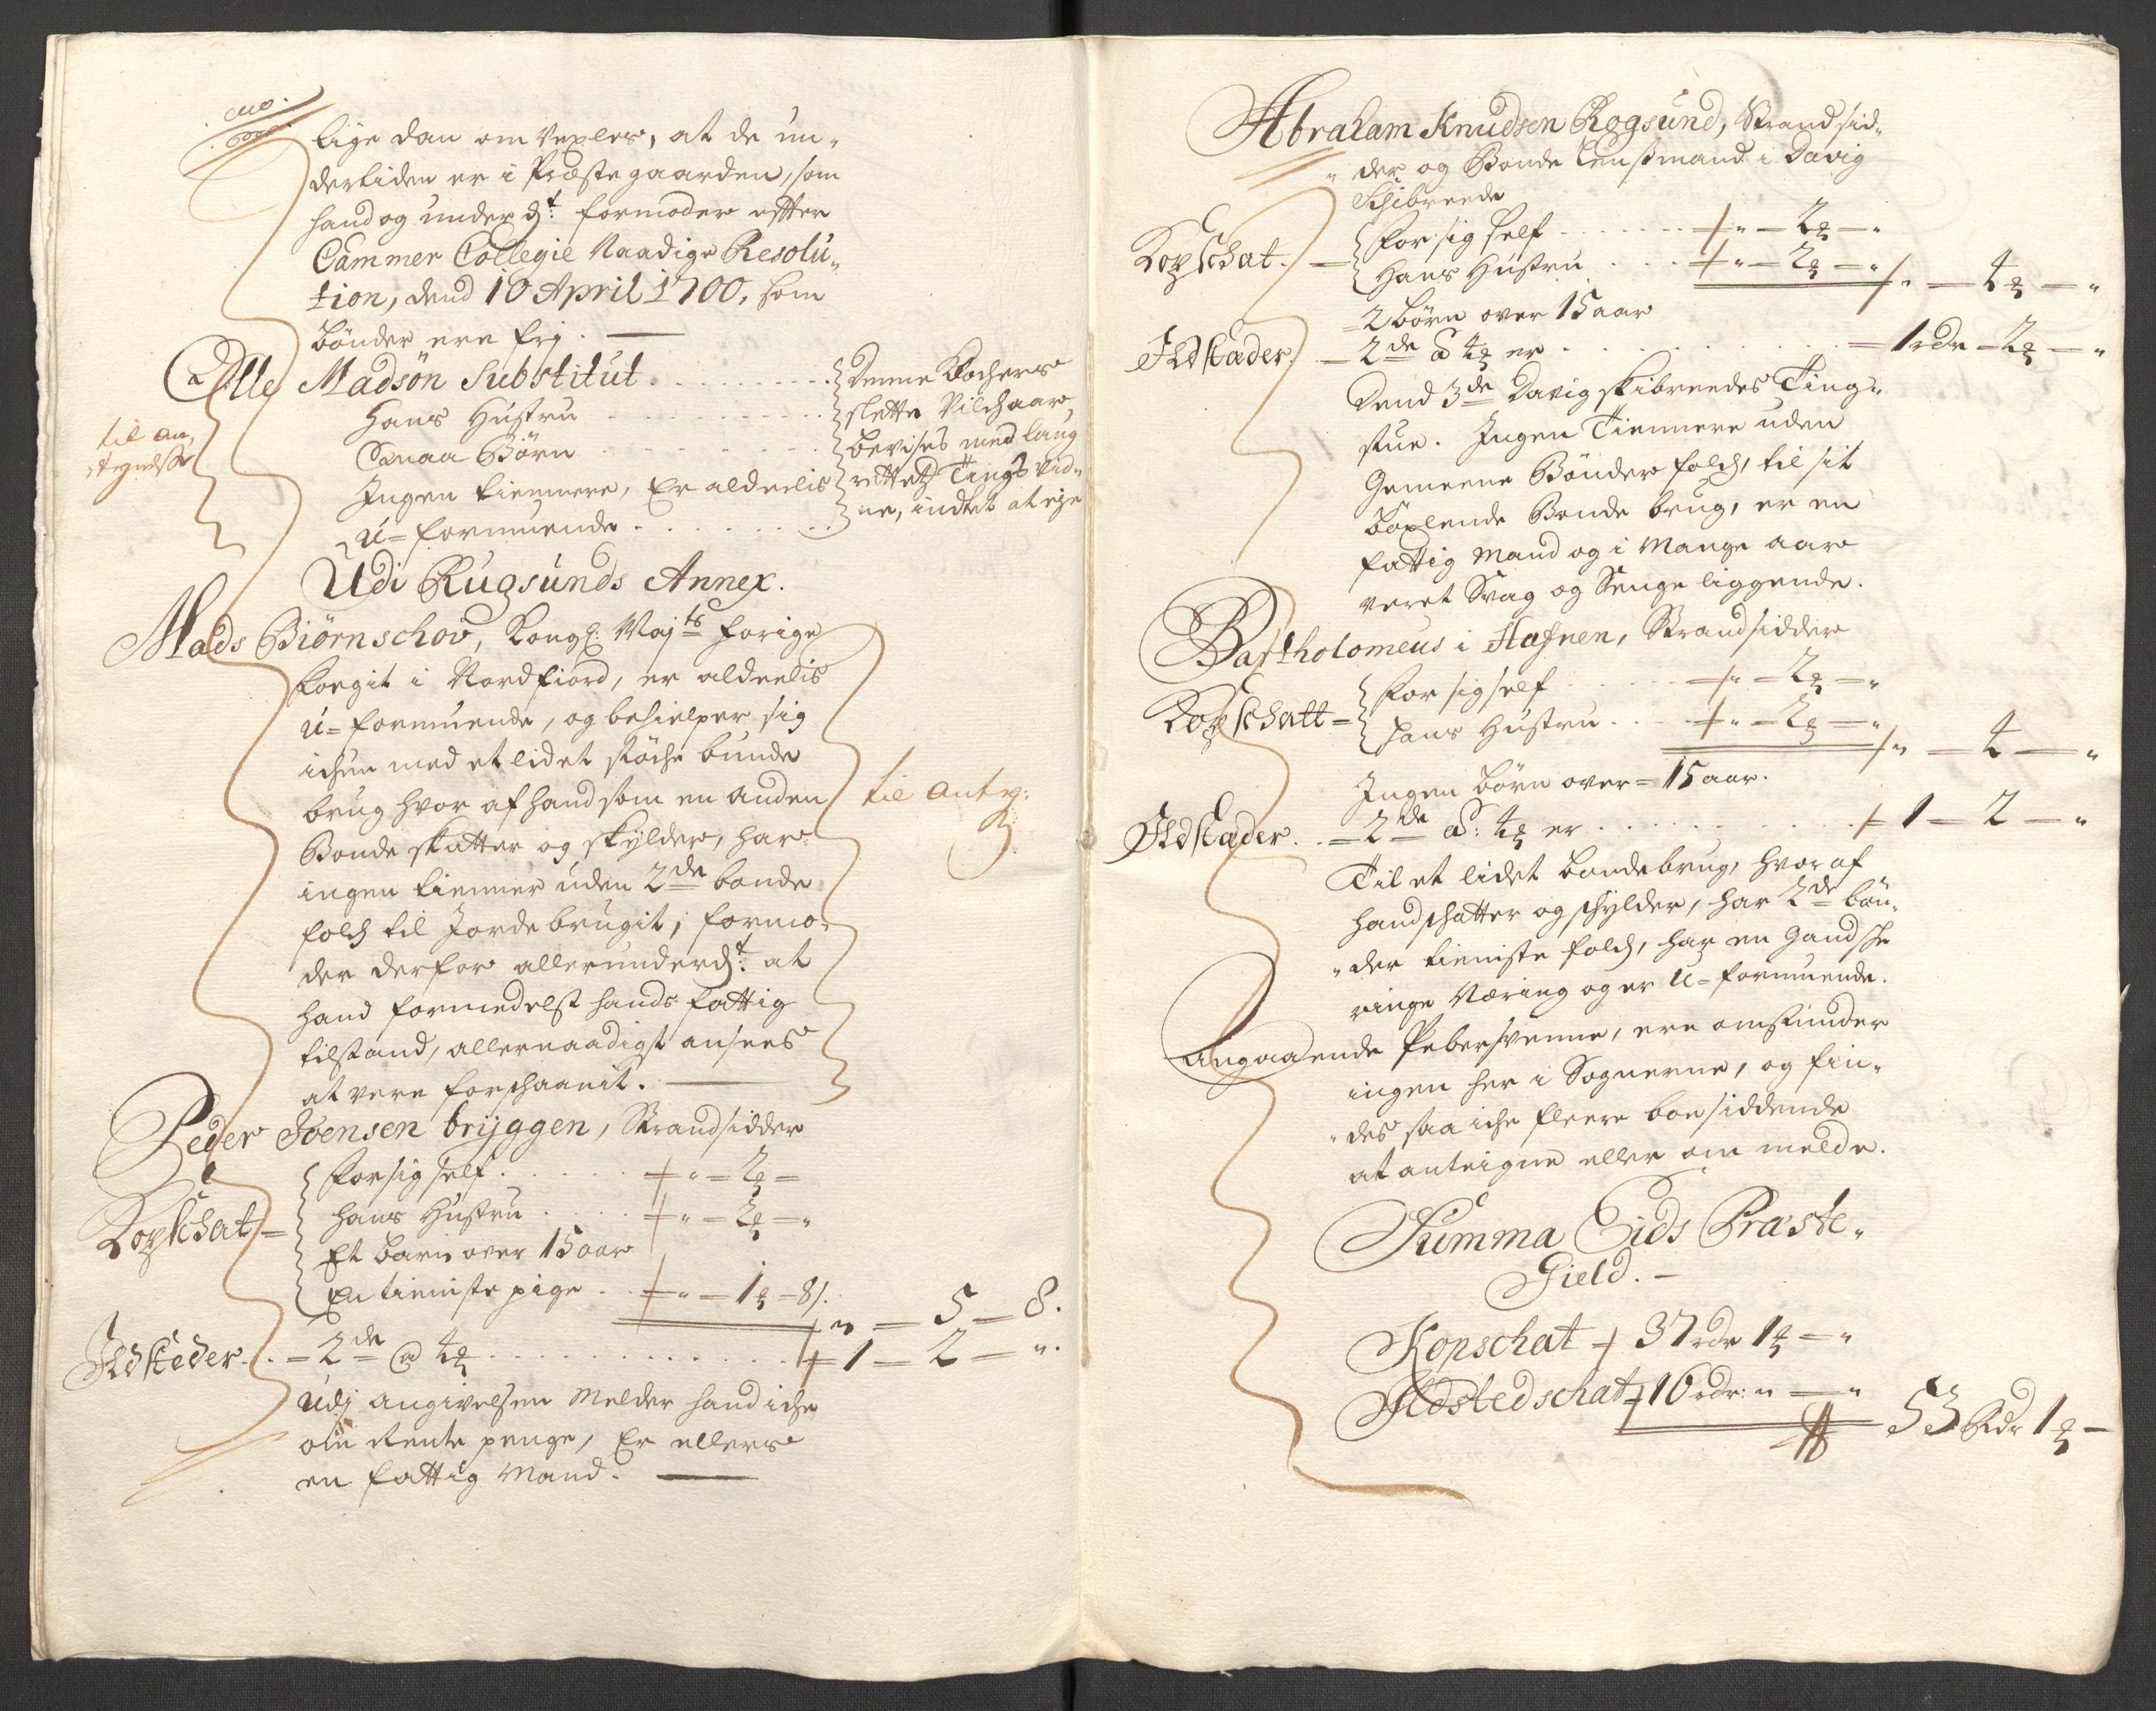 lige dan om Vexles, at de un„
dertiden er i Præste gaarden, som
hand og underdt: formoder effter
Cammer Collegie Naadige Resolu„
tion, dend 10 April 1700, som
bønder ere frj.
Olle Madsøn Substitut
hans Hustru
Smaa Børn
Ingen tiennere, Er alderlis
u=formuende
Denne
slette Vilchaar,
bevises med laug
rettetz Tings vid„
ne, indtet at eye
til an„
tegnelse
Udi Rugsunds Annex.
Mads Biørnschov, Kongl: Maj:ts forige
foegit i Nordfiord, er alderlis
u=formuende, og behielper sig
ichun med et lidet støche bunde
brug hvor af hand som en anden
Bonde skatter og skylder, har
ingen tienner uden 2de bonde
folch til Jorde brugit, formo„
der derfor allerunderdt: at
hand formedelst hands fattig
tilstand, allernaadigst ansees
at vere forschaanit.
til Antg:
Peder Joensen bryggen, Strandsidder
Kopschat =
for sig self . . . " - 2 -
hans Hustru . . . " - 2 - "
Et barn over 15 aar
En tieniste pige . . " - 1 - 8 s. " - 5 - 8.
Ildsteder. . = 2de @ 4 . . . 1 - 2 - ".
Udj angivelsen melder hand iche
om Rente penge, Er ellers
en fattig Mand.
Abraham Knudsen Rogsund, Strandsid„
„der og Bonde Lensmand i Davig
Schibrede
Kopschat. -
for sig self . . . " - 2 - "
hans Hustru . . . " - 2 - " " - 4 - "
= 2 børn over 15 aar
Ildstæder. - 2de á 4 er . . . = 1 rdr - 2 - "
Dend 3de Davig skibreedes Ting„
stue. Ingen Tiennere uden
Gemeene Bønder folch, til sit
bøxlende Bonde brug, er en
fattig Mand og i Mange aar
veret Svag og Senge liggende.
Bartholomeus i Hafnen, Strandsidder
Kopschatt =
for sig self . . . " - 2 - "
hans Hustru . . . " - 2 - " " - 4 - "
Ingen børn over = 15 aar.
Ildstæder. . = 2de á: 4 er . . . 1 - 2 - "
Til et lidet bondebrug, hvor af
hand schatter og schylder, har 2de bøn„
„der tieniste folch, har en gandsche
ringe Næring og er u=formuende.
Angaaende Pebersvenne, ere omstunder
ingen her i Sognerne, og fin„
„des saa iche fleere boesiddende
at anteigne eller om melde.
Summa Eids Præste„
Gield. -
Kopschat 37 rdr 1 - "
Ildstedschat 16 rdr: " - " 53 Rdr 1 -